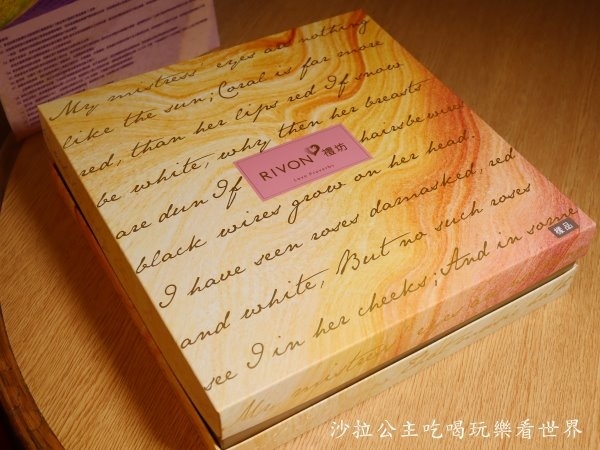 My mistress' eyes are nothing
like the sun; Coral is far more
red, than her lips red If snow
be white, why then her breasts
are dun If hairs be wires
RIVON 禮坊
Love Proverbs
black wires grow on her head.
I have seen roses damasked, red
and white, But no such roses
樣品
see I in her cheeks; And in some
My mistress' eyes are
沙拉公主吃喝玩樂看世界